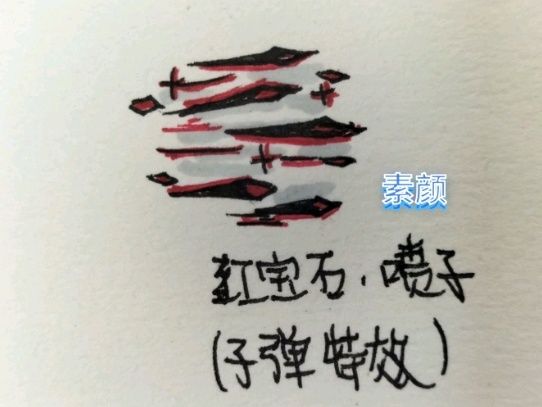 素颜
红宝石.喷子
(子弹特效)